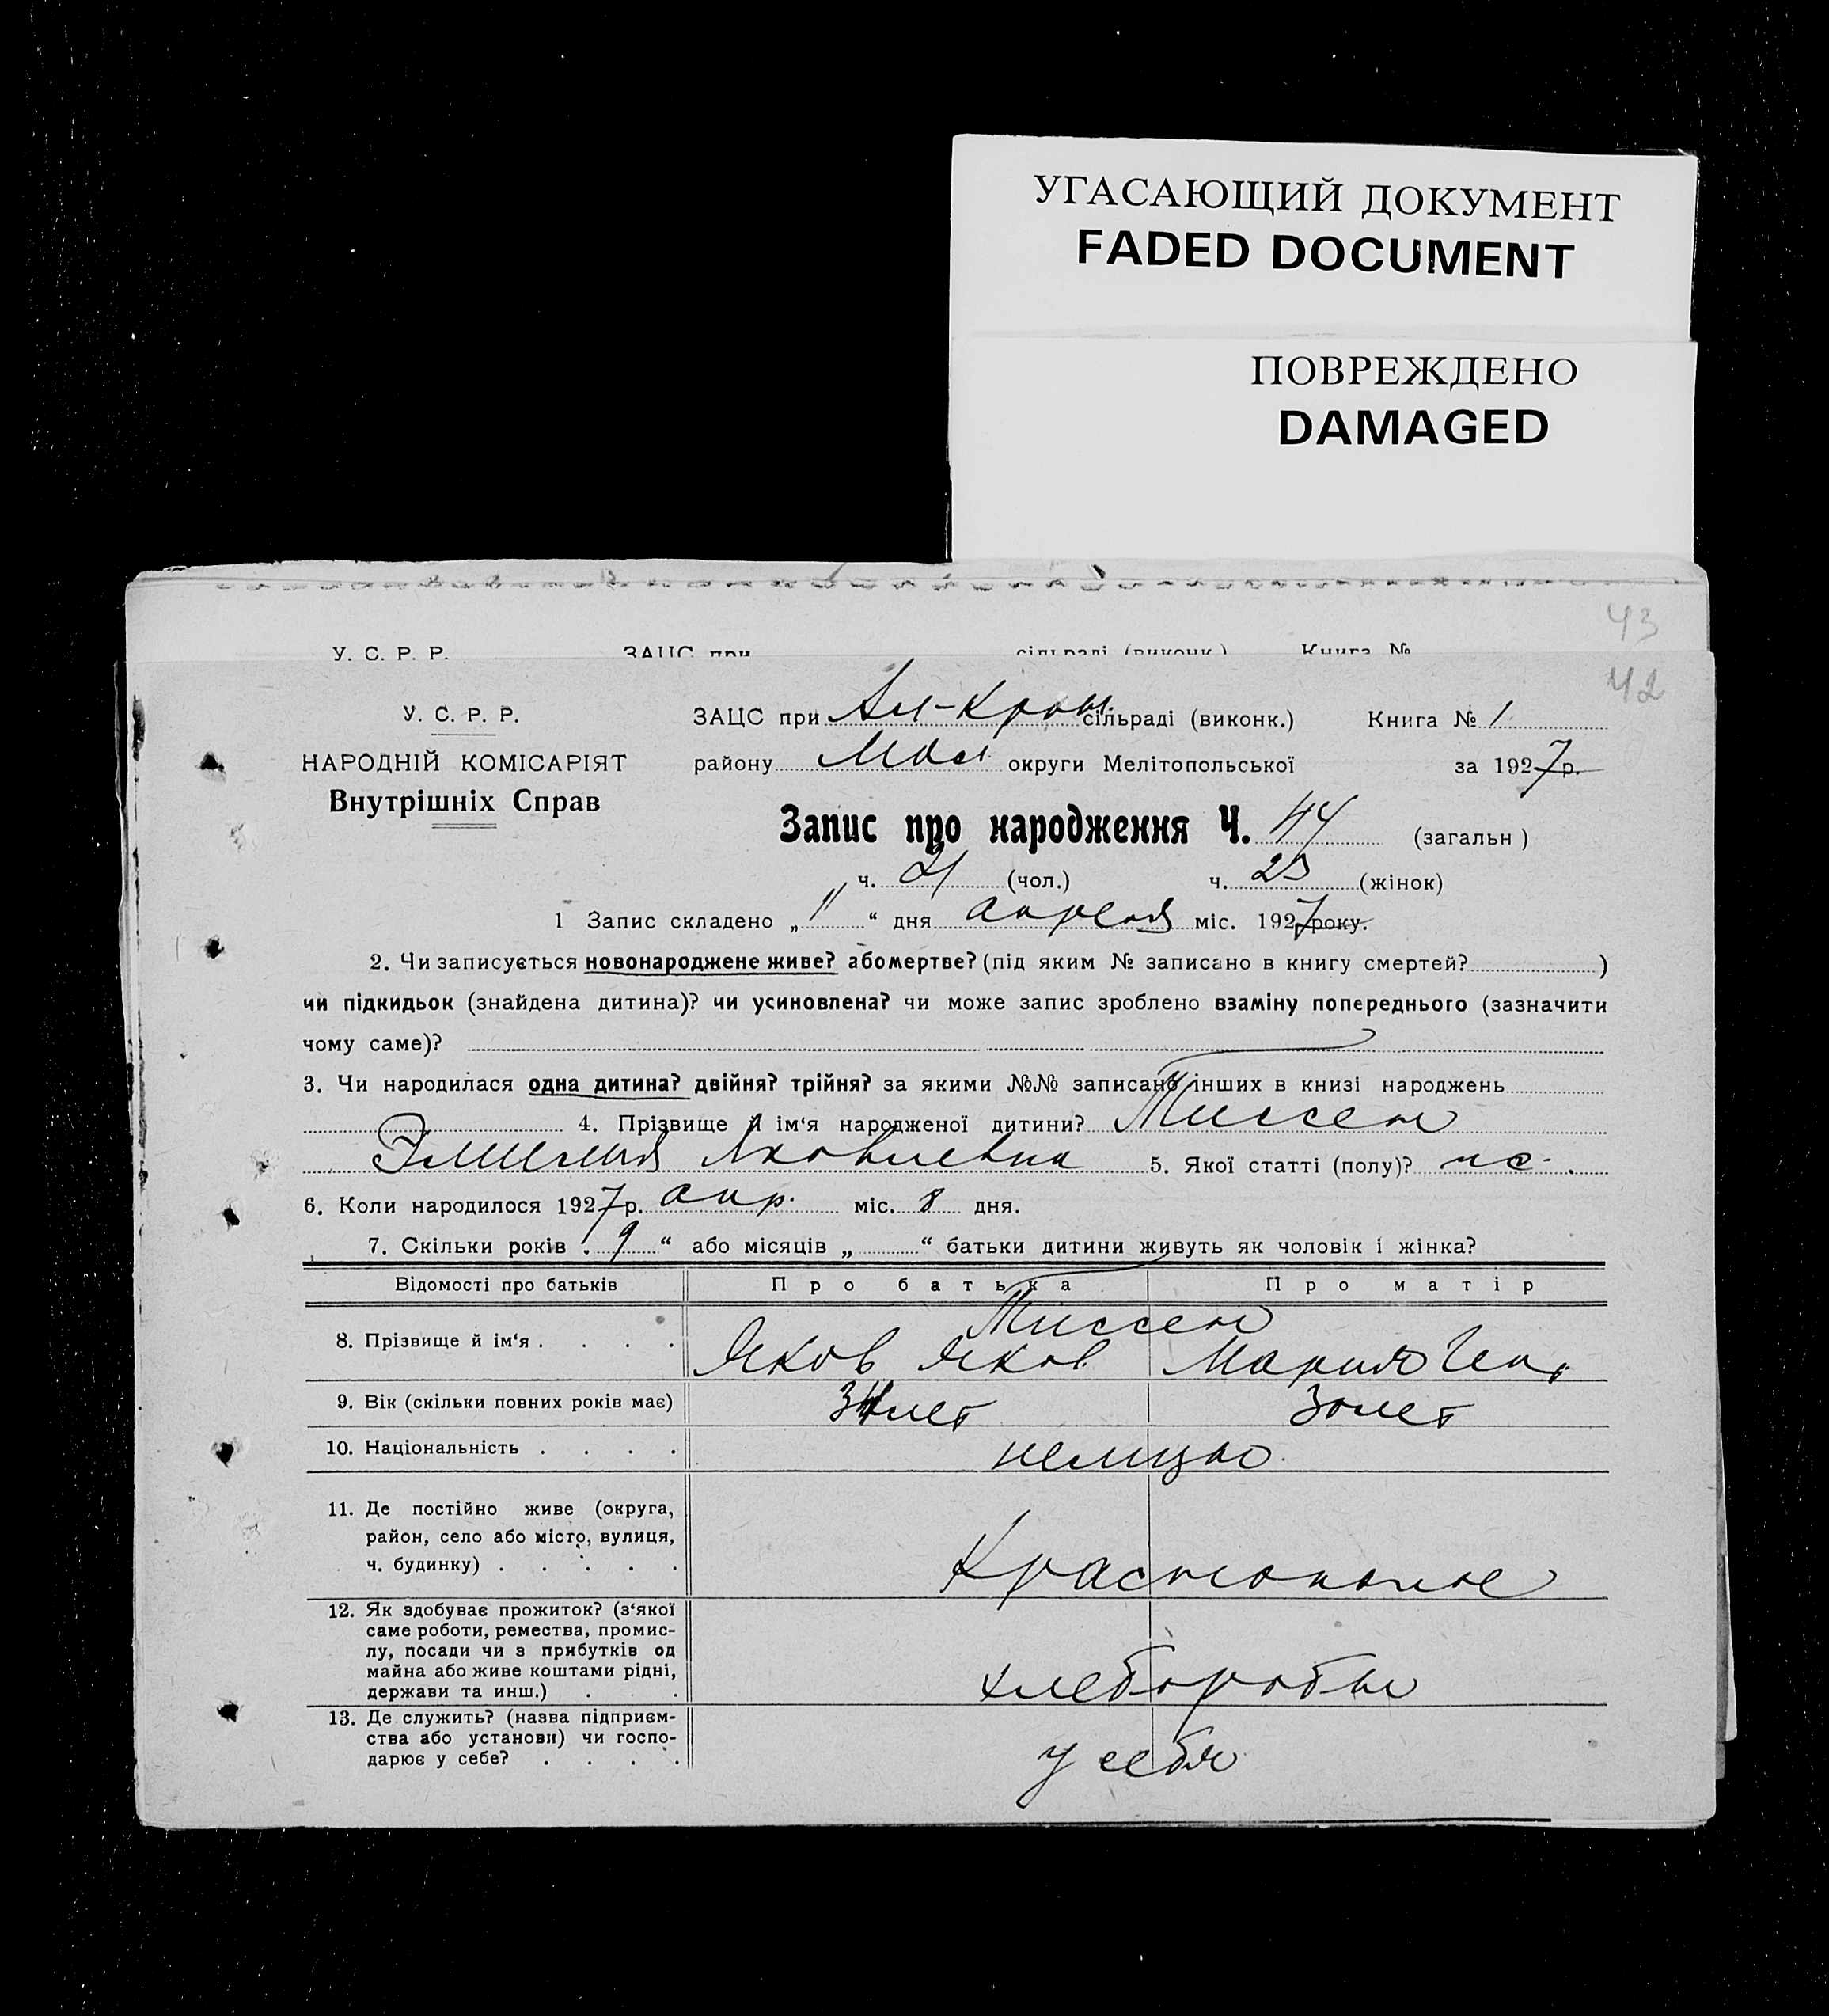 УГАСАЮЩИЙ ДОКУМЕНТ
FADED DOCUMENT
ПОВРЕЖДЕНО
DAMAGED
43
У. С. Р. Р. ЗАЦС при сільраді (виконк.) Книга №
42
У. С. Р. Р. ЗАЦС при сільраді (виконк.) Книга № 1
НАРОДНІЙ КОМІСАРІЯТ району Мол. округи Мелітопольської за 1927 р.
Внутрішніх Справ
Запис про народження Ч. 44 (загальн)
ч. 21 (чол.) ч. 23 (жінок)
1 Запис складено „ 11 “ дня апреля міс. 1927 року.
2. Чи записується новонароджене живе? або мертве? (під яким № записано в книгу смертей? )
чи підкидьок (знайдена дитина)? чи усиновлена? чи може запис зроблено взаміну попереднього (зазначити
чому саме)?
3. Чи народилася одна дитина? двійня? трійня? за якими №№ записано інших в книзі народжень
4. Прізвище й ім‘я народженої дитини? Тиссен
Эмилия Яковлевна 5. Якої статті (полу)?
6. Коли народилося 1927 р. апр. міс. 8 дня.
7. Скільки років „ 9 “ або місяців „ “ батьки дитини живуть як чоловік і жінка?
Відомості про батьків Про батька Про матір
Тиссен
8. Прізвище й ім‘я . . . . Яков Яков. Мария
9. Вік (скільки повних років має) 34 лет 30 лет
10. Національність . . . . немцы
11. Де постійно живе (округа,
район, село або місто, вулиця,
ч. будинку) . . . . . Краснополье
12. Як здобуває прожиток? (з‘якої
саме роботи, ремества, промис-
лу, посади чи з прибутків од
майна або живе коштами рідні,
держави та инш.) . . хлеборобы
13. Де служить? (назва підприєм-
ства або установи) чи госпо-
дарює у себе? . . . . у себя